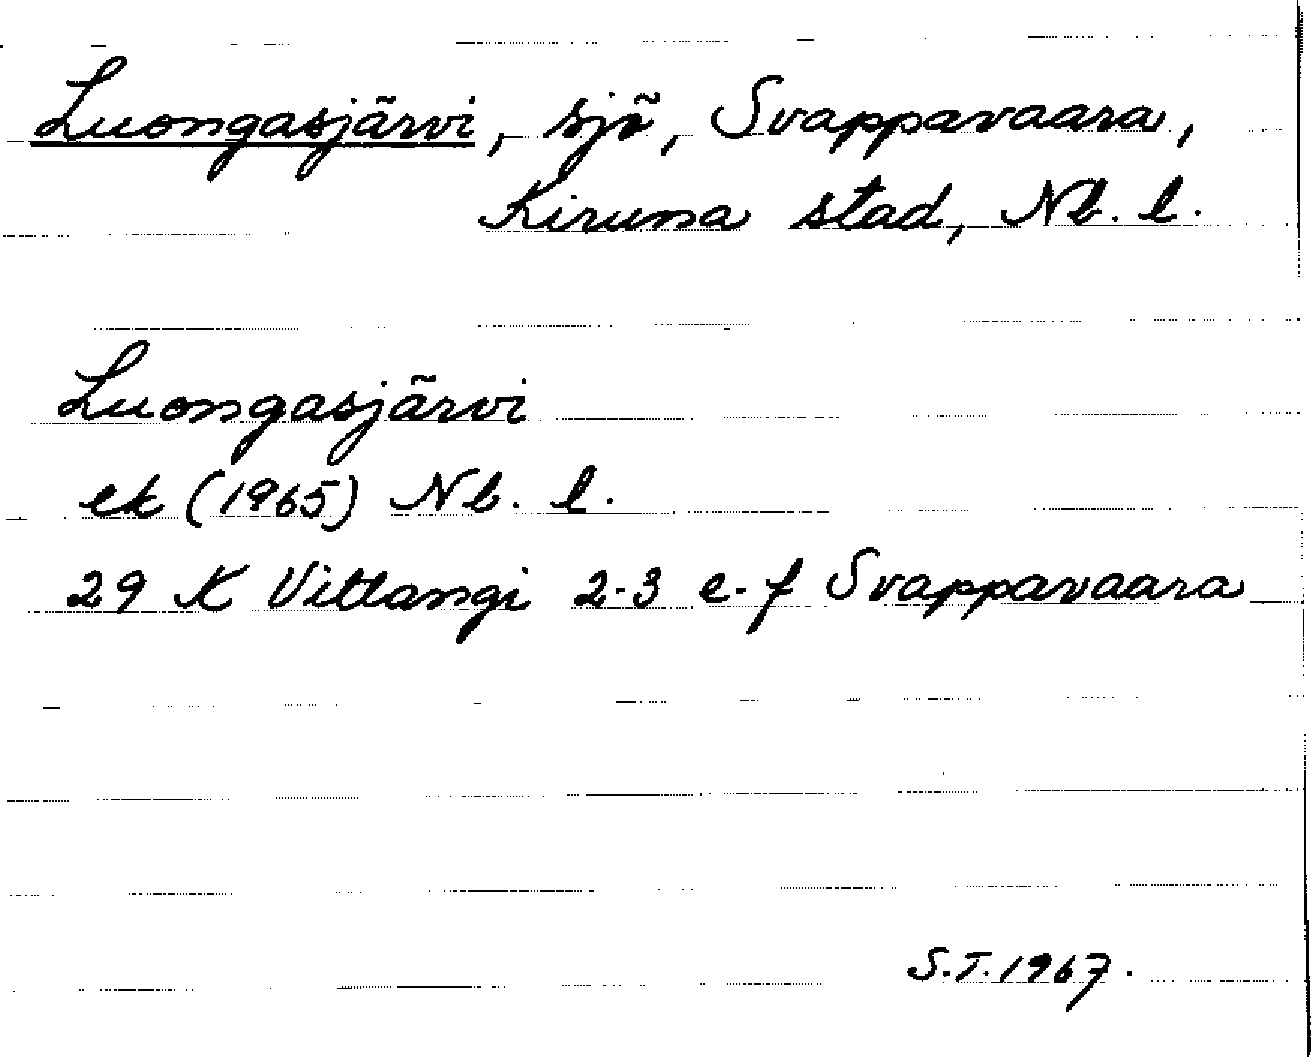 Luongasjärvi, sjö, Svappavaara,
Kiruna stad, Nb. l.
Luongasjärvi
ek (1965) Nb. l.
29 K Vittangi 2-3 e-f Svappavaara
S.T. 1967.